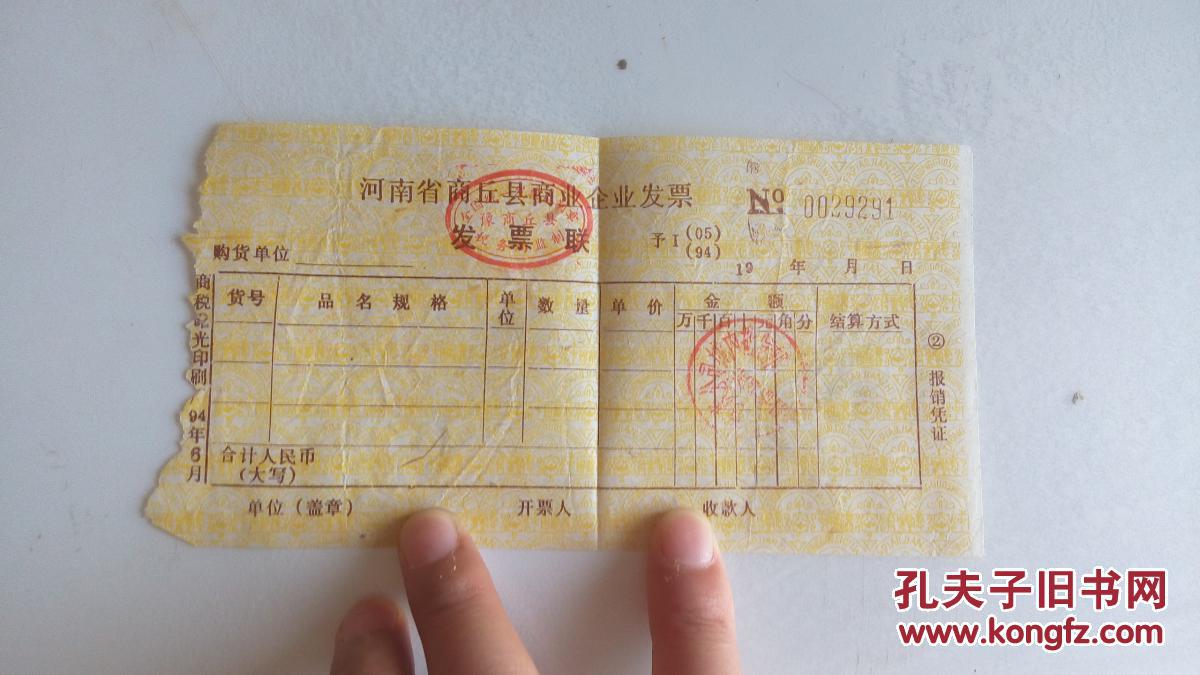 河南省商丘县商业企业发票
发票联
№ 0029291
予I(05)(94)
购货单位
19 年 月 日
货号 品名规格 单位 数量 单价 金额 结算方式
万千百十元角分
合计人民币
(大写)
单位(盖章) 开票人 收款人
② 报销凭证
光印刷 94年6月
商丘县
税务 监制
孔夫子旧书网
www.kongfz.com